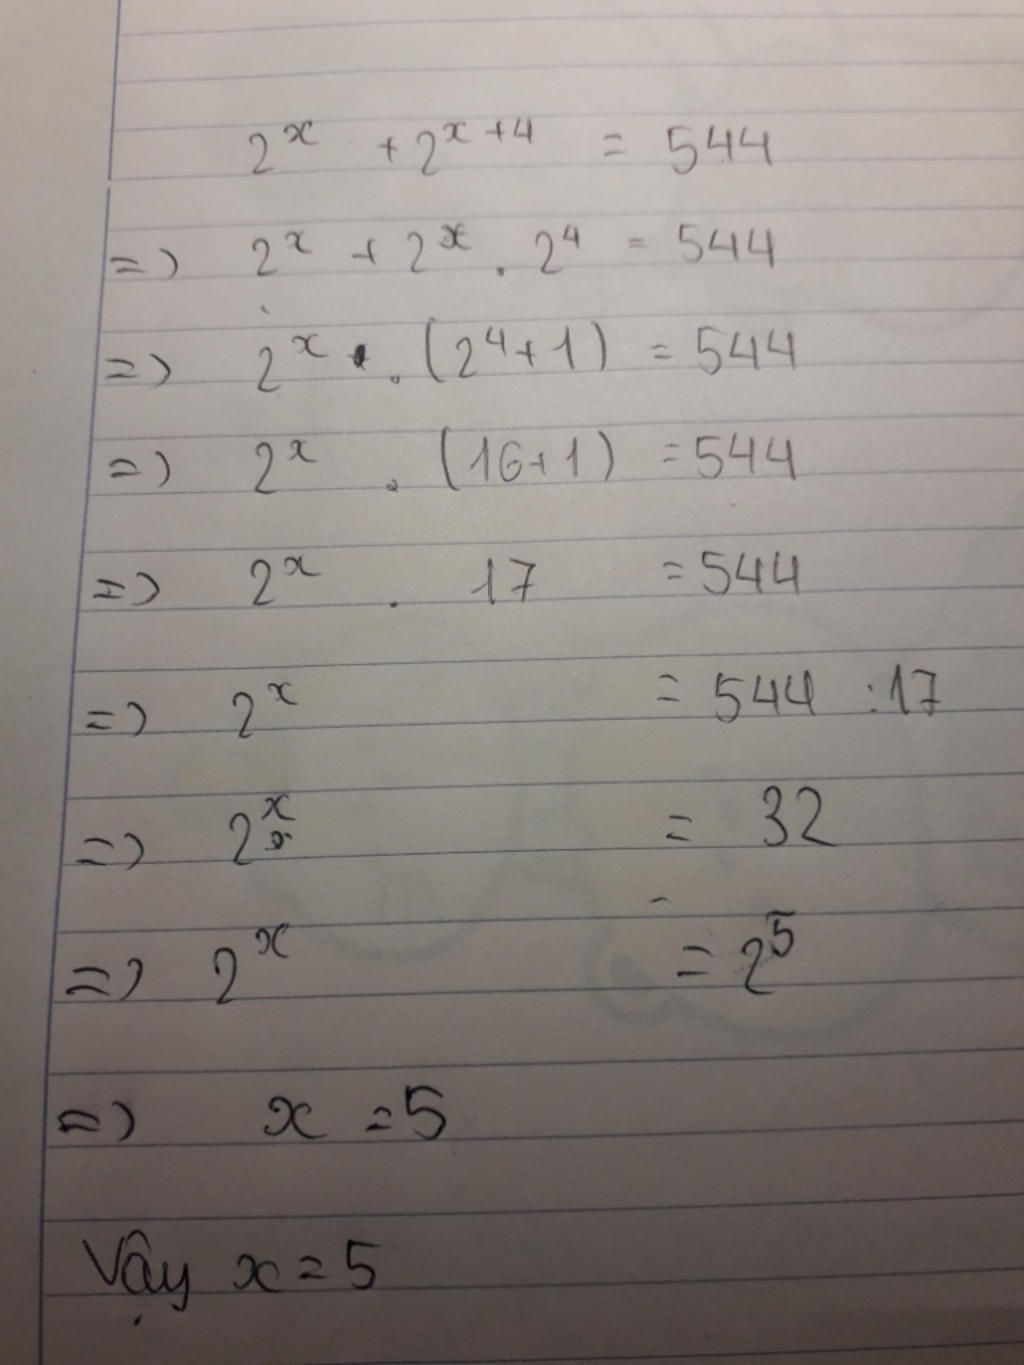 2^x + 2^{x+4} = 544
=) 2^x + 2^x . 2^4 = 544
=) 2^x . (2^4+1) = 544
=) 2^x . (16+1) = 544
=) 2^x . 17 = 544
=) 2^x = 544 : 17
=) 2^x = 32
=) 2^x = 2^5
=) x = 5
Vậy x = 5